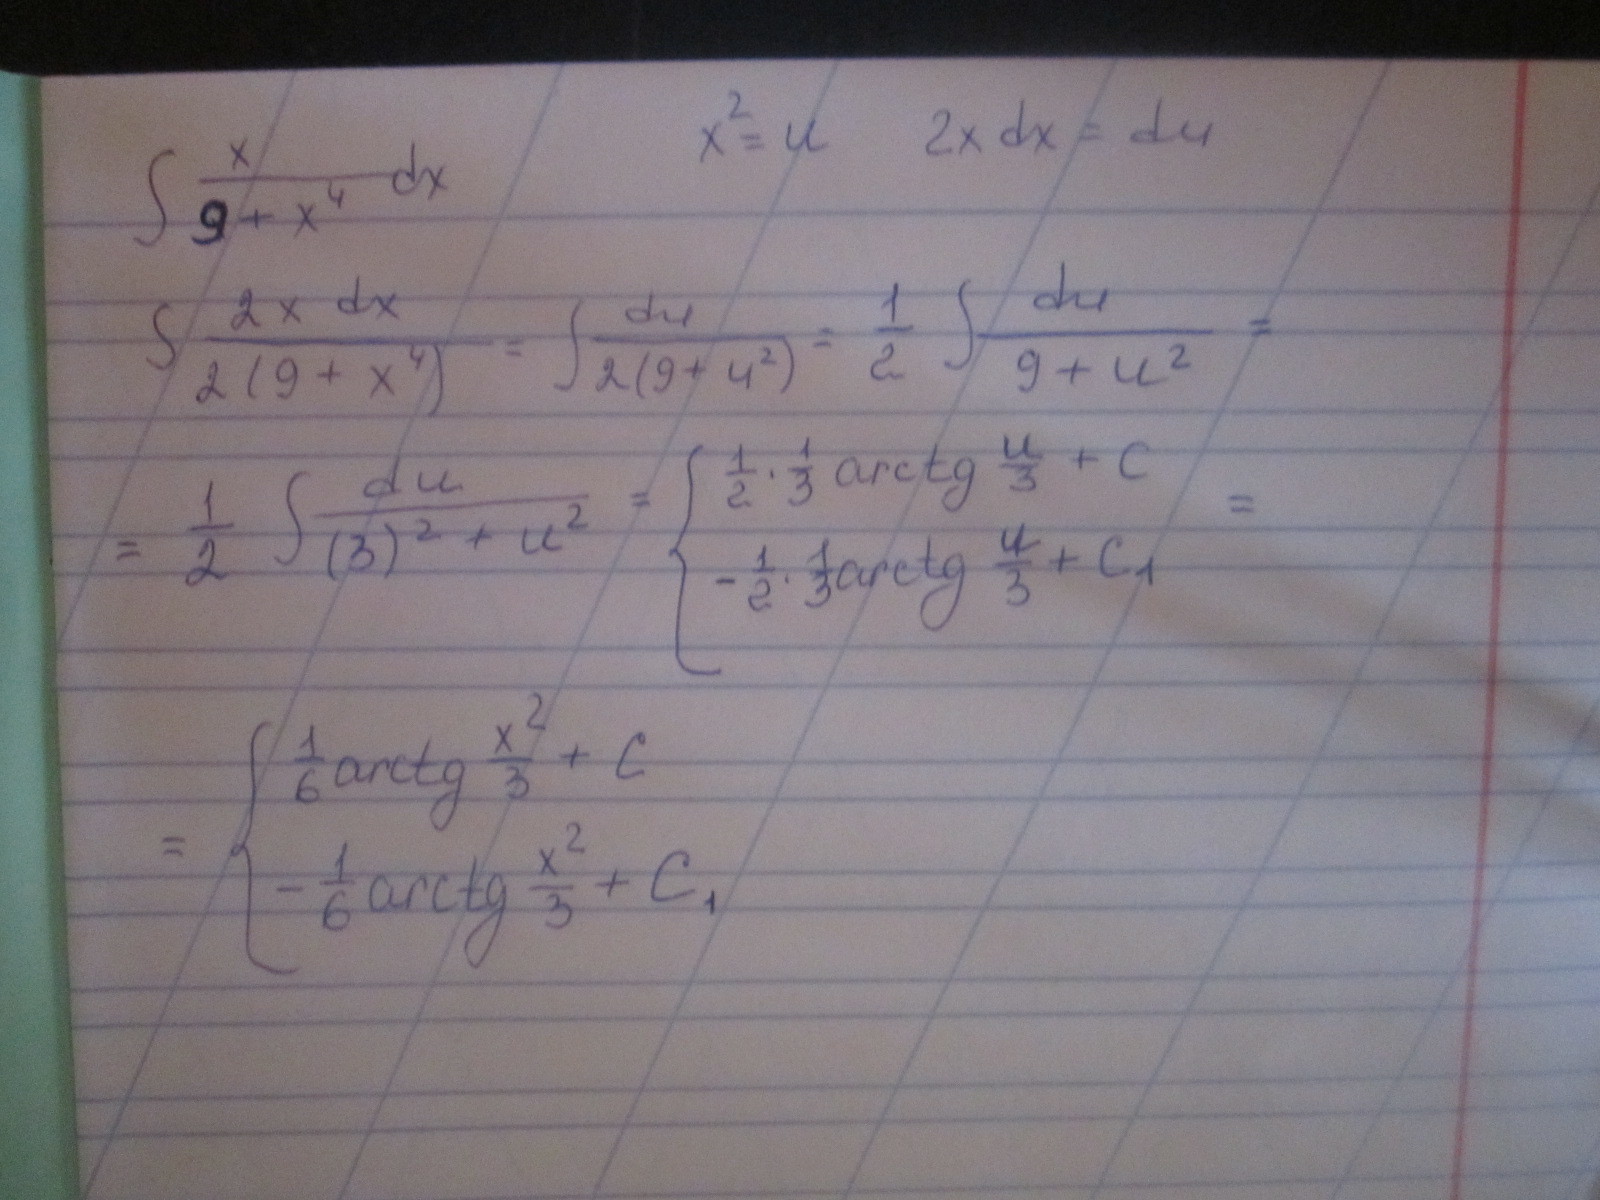 ∫ x / (9 + x⁴) dx    x² = u    2x dx = du
∫ 2x dx / 2(9 + x⁴) = ∫ du / 2(9 + u²) = 1/2 ∫ du / (9 + u²) =
= 1/2 ∫ du / ((3)² + u²) = { 1/2 · 1/3 arctg u/3 + C =
-1/2 · 1/3 arctg u/3 + C₁
= { 1/6 arctg x²/3 + C
-1/6 arctg x²/3 + C₁